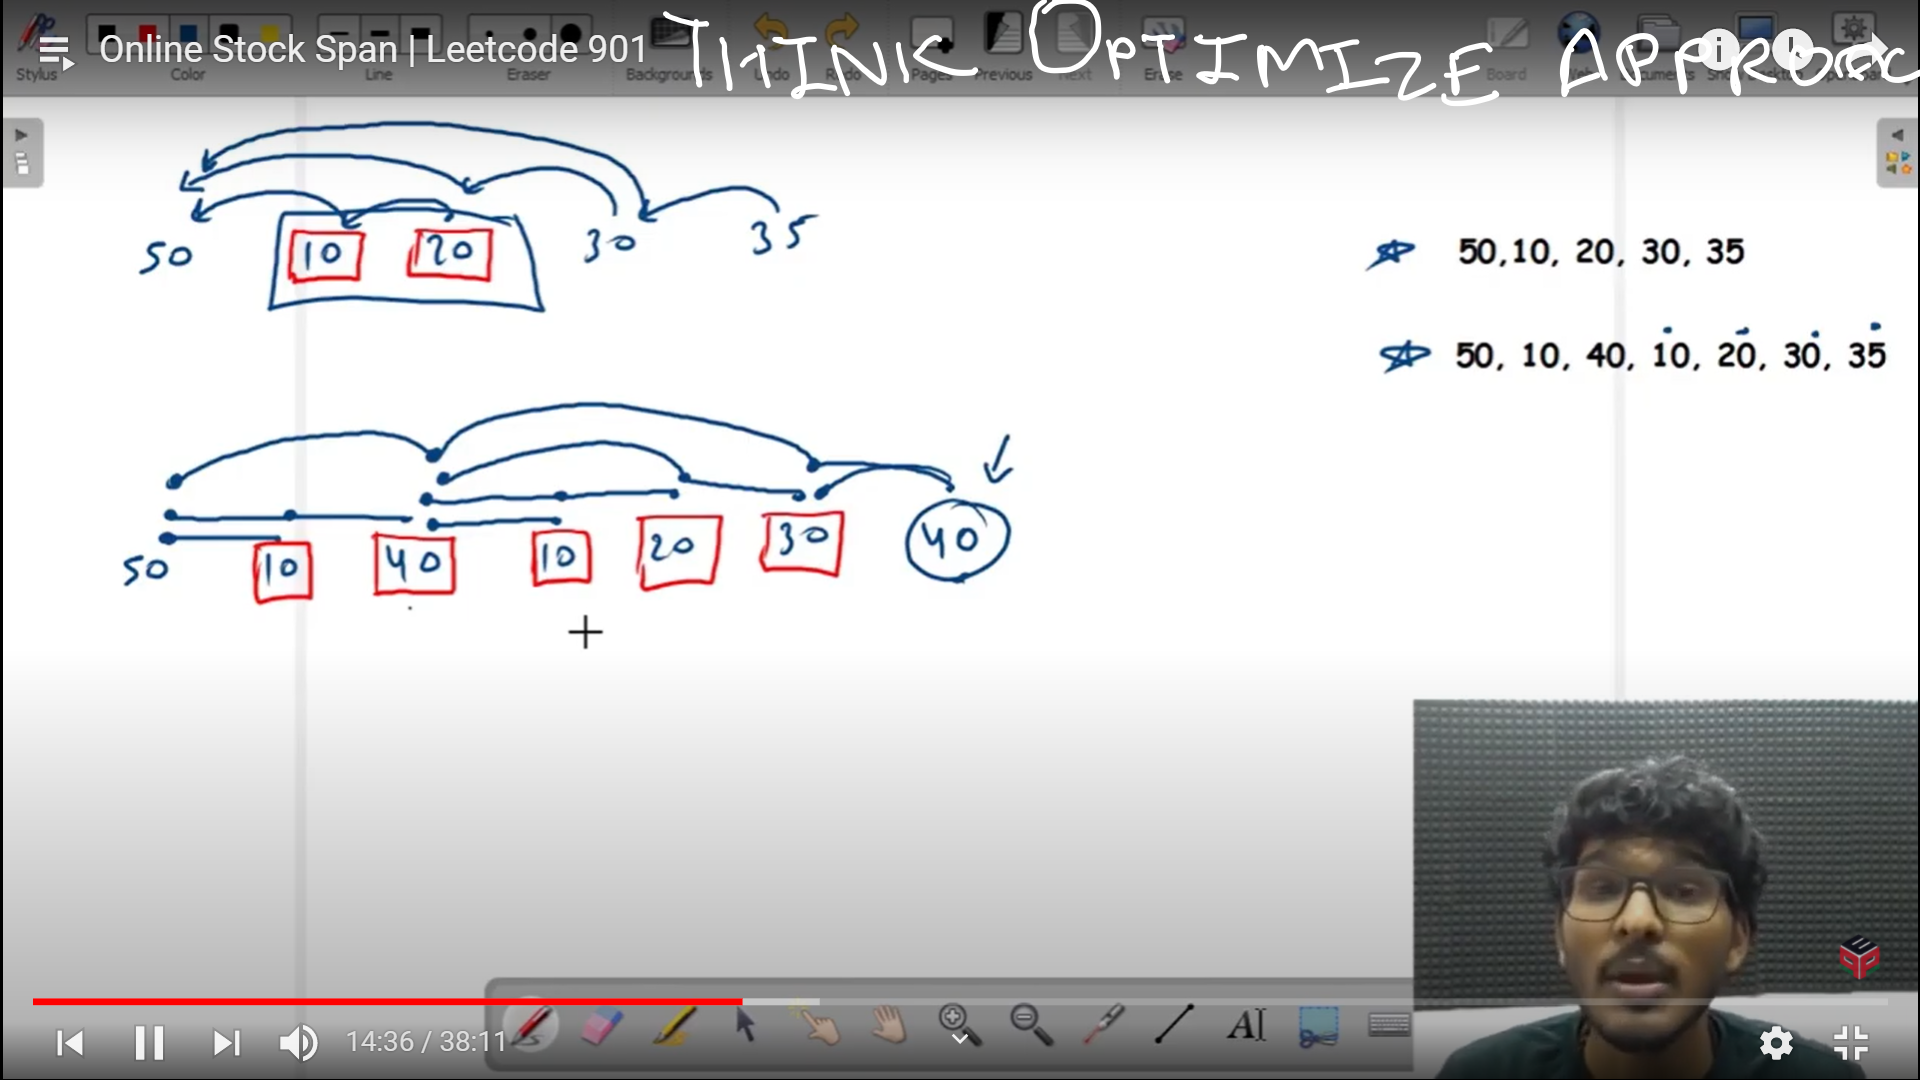 Online Stock Span | Leetcode 901
THINK OPTIMIZE APPROAC
Stylus Color Line Eraser Backgrounds Undo Redo Pages Previous Next Erase Board Web Documents Show Desktop
50 10 20 30 35
50,10, 20, 30, 35
50, 10, 40, 10, 20, 30, 35
50 10 40 10 20 30 40
AI
14:36 / 38:11